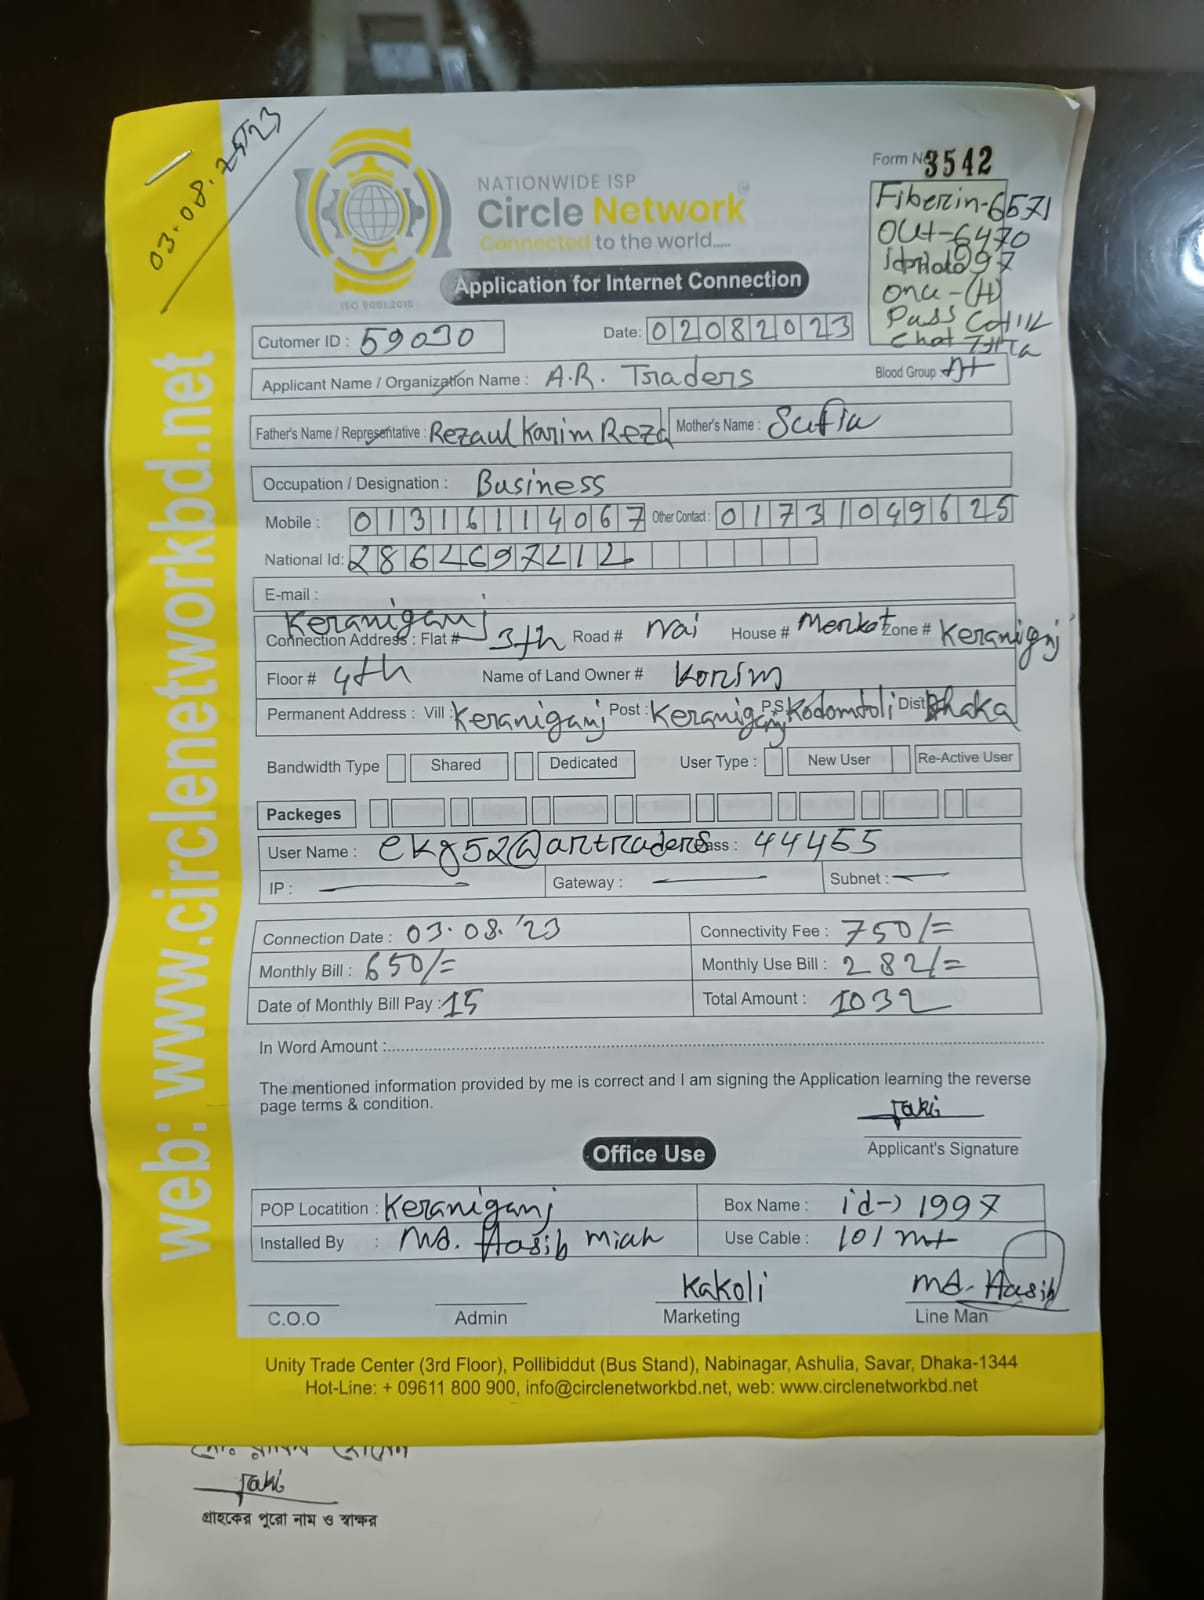 03.08.2023
Form No 3542
NATIONWIDE ISP
Circle Network
Connected to the world.....
ISO 9001:2015
Application for Internet Connection
Fiberin-6571
Out-6470
onu-(H)
Pass
Cutomer ID : 59030
Date: 02082023
Applicant Name / Organization Name : A.R. Traders
Blood Group A+
Father's Name / Representative : Rezaul Karim Reza
Mother's Name : Sufia
Occupation / Designation : Business
Mobile : 01316114067 Other Contact : 01731049625
National Id: 2864697212
E-mail :
Keraniganj
Connection Address : Flat # 3th Road # House # Market Zone # Keraniganj
Floor # 4th Name of Land Owner # Korim
Permanent Address : Vill : Keraniganj Post : Keraniganj P.S Kodomtoli Dist Dhaka
Bandwidth Type Shared Dedicated User Type : New User Re-Active User
Packeges
User Name : ekg52@artraders Pass : 44455
IP : Gateway : Subnet :
Connection Date : 03.08.'23 Connectivity Fee : 750/=
Monthly Bill : 650/= Monthly Use Bill : 282/=
Date of Monthly Bill Pay : 15 Total Amount : 1032
In Word Amount :
The mentioned information provided by me is correct and I am signing the Application learning the reverse
page terms & condition.
Applicant's Signature
Office Use
POP Locatition : Keraniganj Box Name : id-) 1997
Installed By : Md. Hasib Miah Use Cable : 101 mt
Kakoli Md. Hasib
C.O.O Admin Marketing Line Man
Unity Trade Center (3rd Floor), Pollibiddut (Bus Stand), Nabinagar, Ashulia, Savar, Dhaka-1344
Hot-Line: + 09611 800 900, info@circlenetworkbd.net, web: www.circlenetworkbd.net
web: www.circlenetworkbd.net
গ্রাহকের পুরো নাম ও স্বাক্ষর